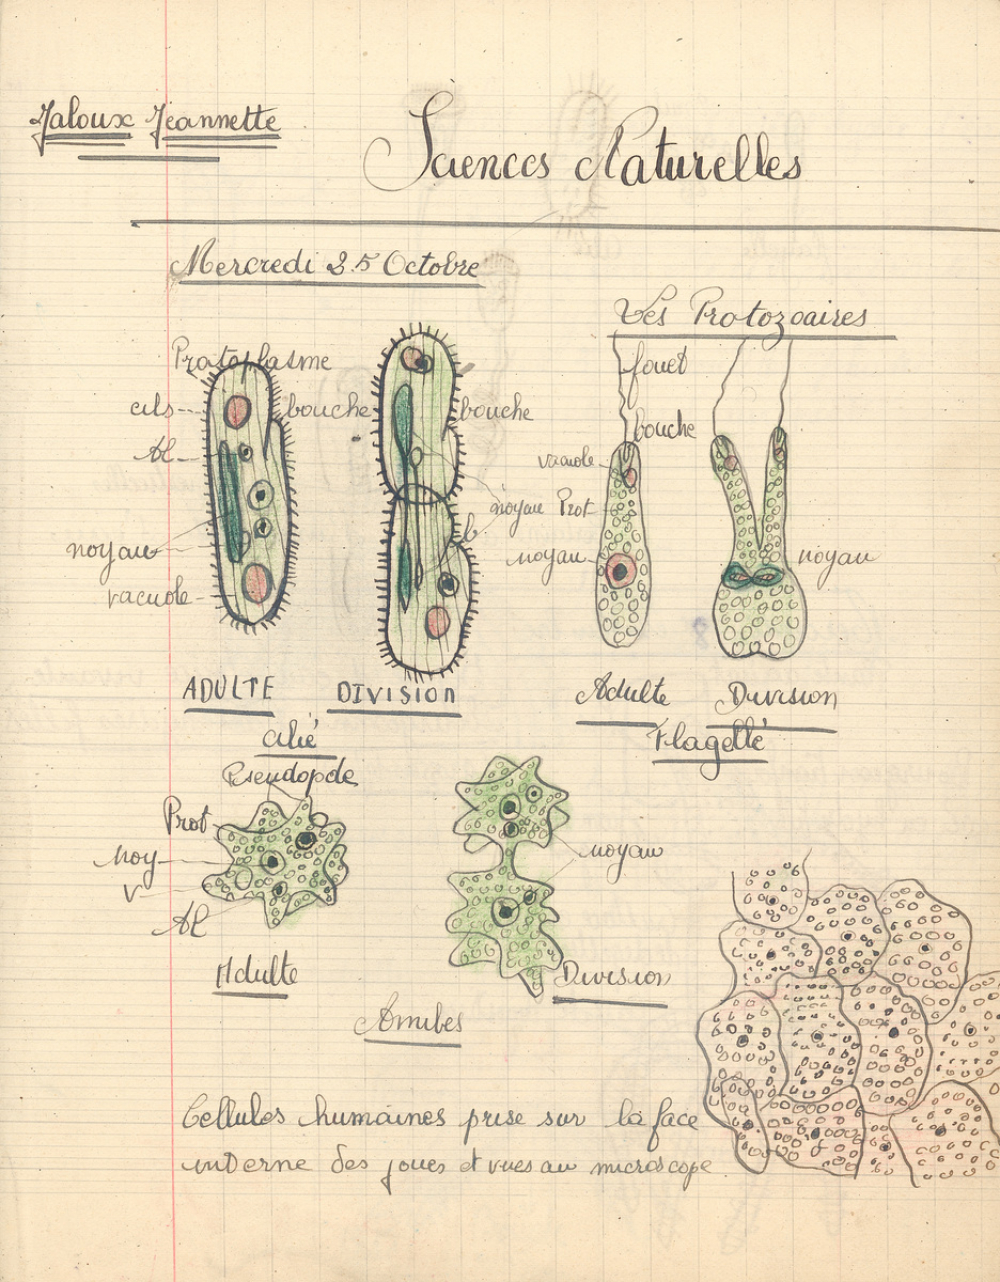 Jaloux Jeannette
Sciences Naturelles
Mercredi 25 Octobre
Les Protozoaires
Protoplasme
cils
bouche
Al
noyau
vacuole
ADULTE
bouche
noyau
b
DIVISION
Cilié
fouet
bouche
vacuole
Prot
noyau
Adulte
noyau
Division
Flagellé
Pseudopode
Prot
noy
v
Al
Adulte
noyau
Division
Amibes
Cellules humaines prise sur la face
interne des joues et vues au microscope